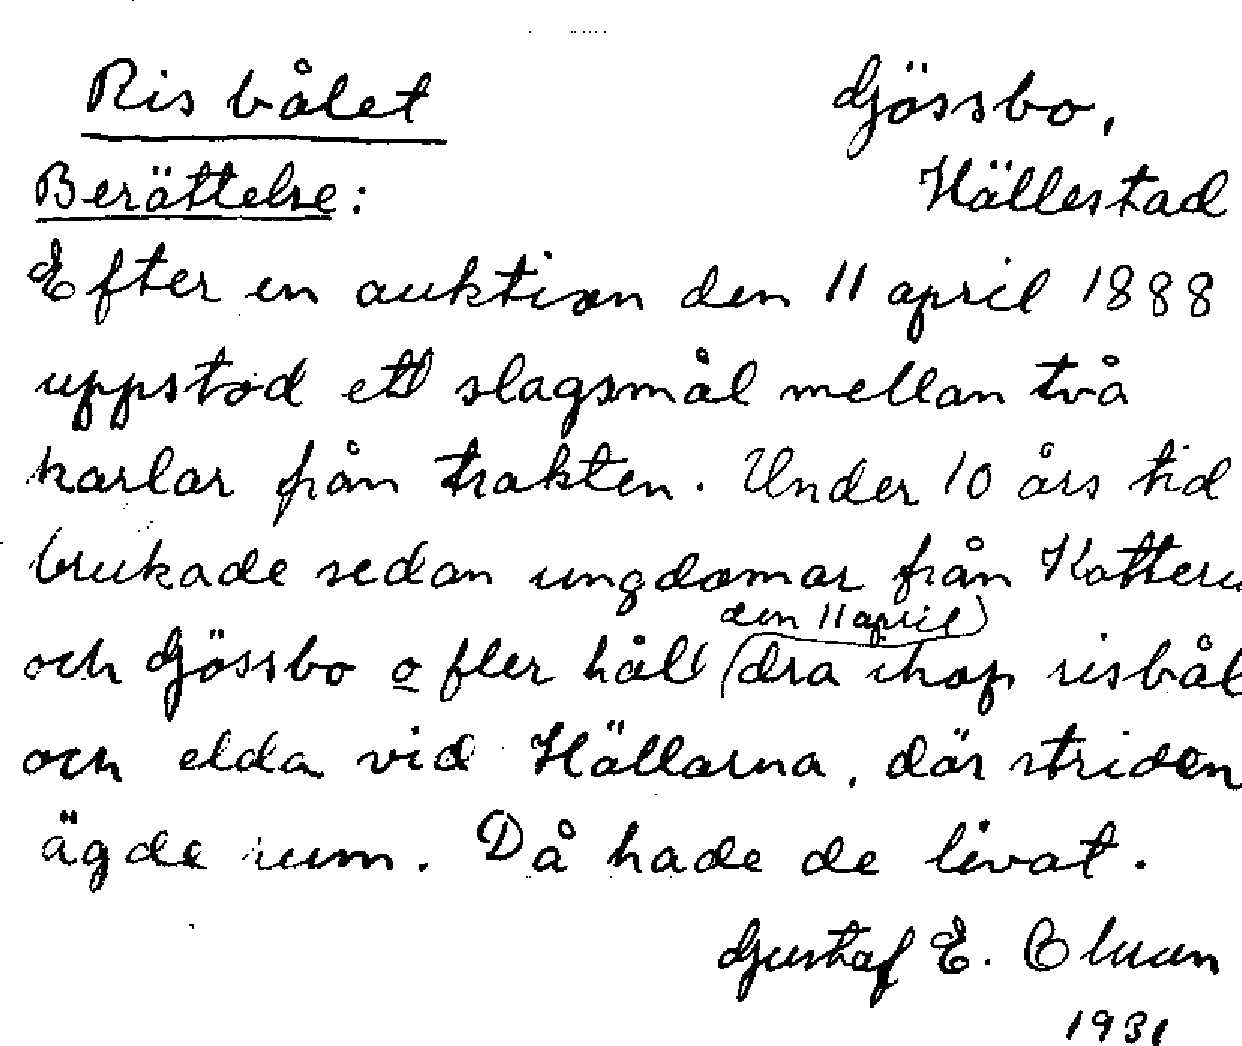 Risbålet Gössbo,
Berättelse: Hällestad
Efter en auktion den 11 april 1888
uppstod ett slagsmål mellan två
karlar från trakten. Under 10 års tid
brukade sedan ungdomar från
den 11 april
och Gössbo o fler håll dra ihop risbål
och elda vid Hällarna, där striden
ägde rum. Då hade de livat.
Gustaf E.
1931